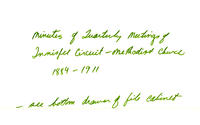 Minutes of Quarterly Meetings of
Innisfil Circuit - Methodist Church
1884 - 1911
- see bottom drawer of file cabinet